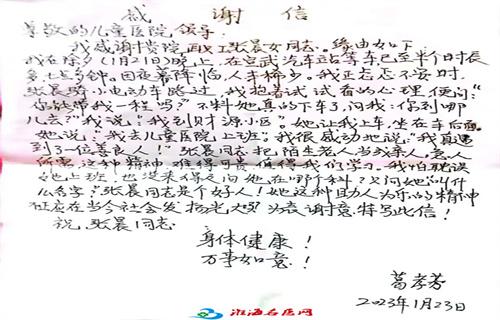 感谢信
尊敬的儿童医院领导:
我感谢贵院职工张晨女同志。缘由如下
我在除夕(1月21日)晚上,在宣武汽车站等车已至半个时长
多,七点多钟。因夜幕降临,人车稀少。我正忐忑不安时,
张晨骑小电动车路过,我抱着试试看的心理,便问:“
你能带我一程吗?”不料她真的下车了,问我:“你到哪
儿去?”我说:“我到财源小区”。她让我上车,坐在车后面。
她说:“我去儿童医院上班”。我很感动地说:“我真遇
到了一位善良人!”张晨同志把陌生老人当成亲人,急人
所需,这种精神难得可贵,值得我们学习。我怕耽误
她上班,也没来得及问她在哪个科?又问她“叫什
么名字?”张晨同志是个好人!她这种助人为乐的精神
应在当今社会发扬光大!为表谢意,特写此信!
祝张晨同志
身体健康!
万事如意!
葛孝芳
2023年1月23日
淮海名医网